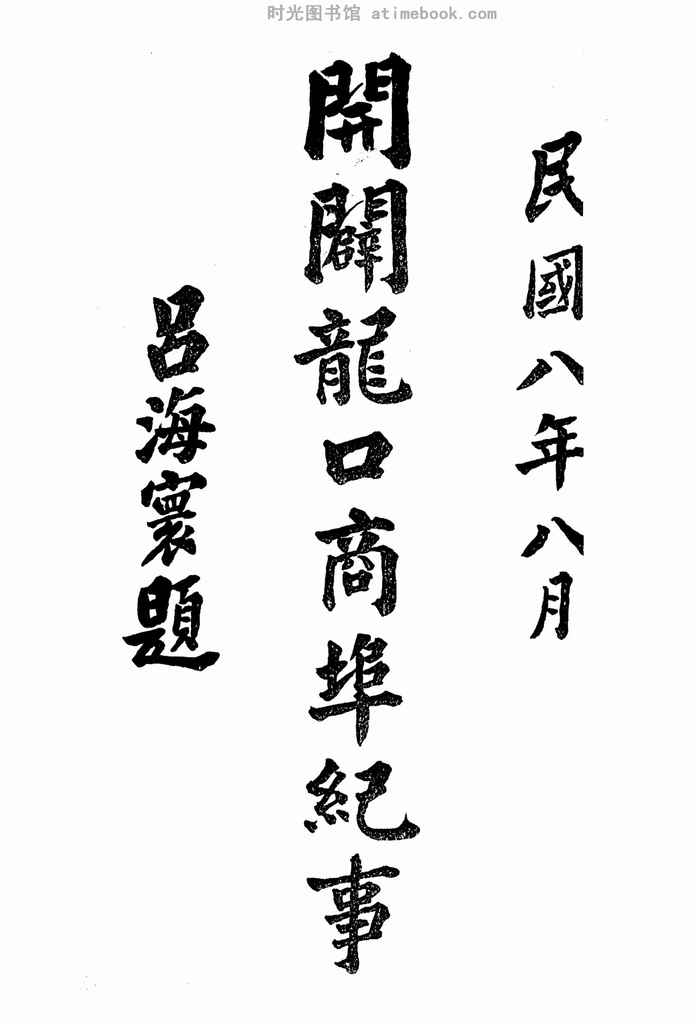 时光图书馆 atimebook.com
民國八年八月
開闢龍口商埠紀事
呂海寰題